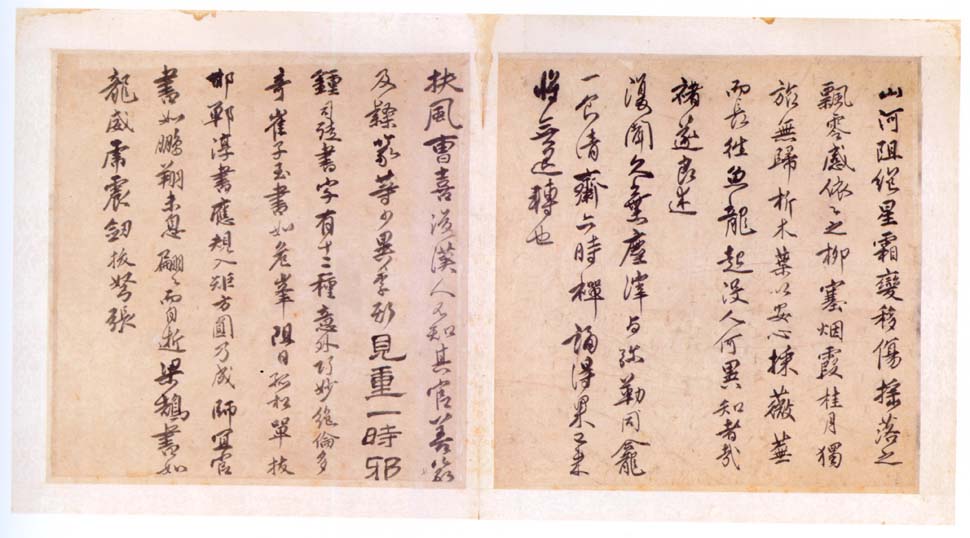 山河阻絕星霜變移傷搖落之
飄零感依々之柳塞烟霞桂月獨
旅無歸折木葉以安心採薇蕪
而長往魚龍起沒人何異知者哉
褚遂良述
復聞久棄塵滓与弥勒同龕
一食清齋六時禪誦得果已來
將無退轉也
扶風曹喜後漢人不知其官善篆
及隸篆等少異李斯見重一時邪
鍾司徒書字有十二種意外巧妙絕倫多
奇崔子玉書如危峯阻日孤松單枝
邯鄲淳書應規入矩方圓乃成師宜官
書如鵬翔未息翩々而自逝梁鵠書如
龍威虎震劍拔弩張